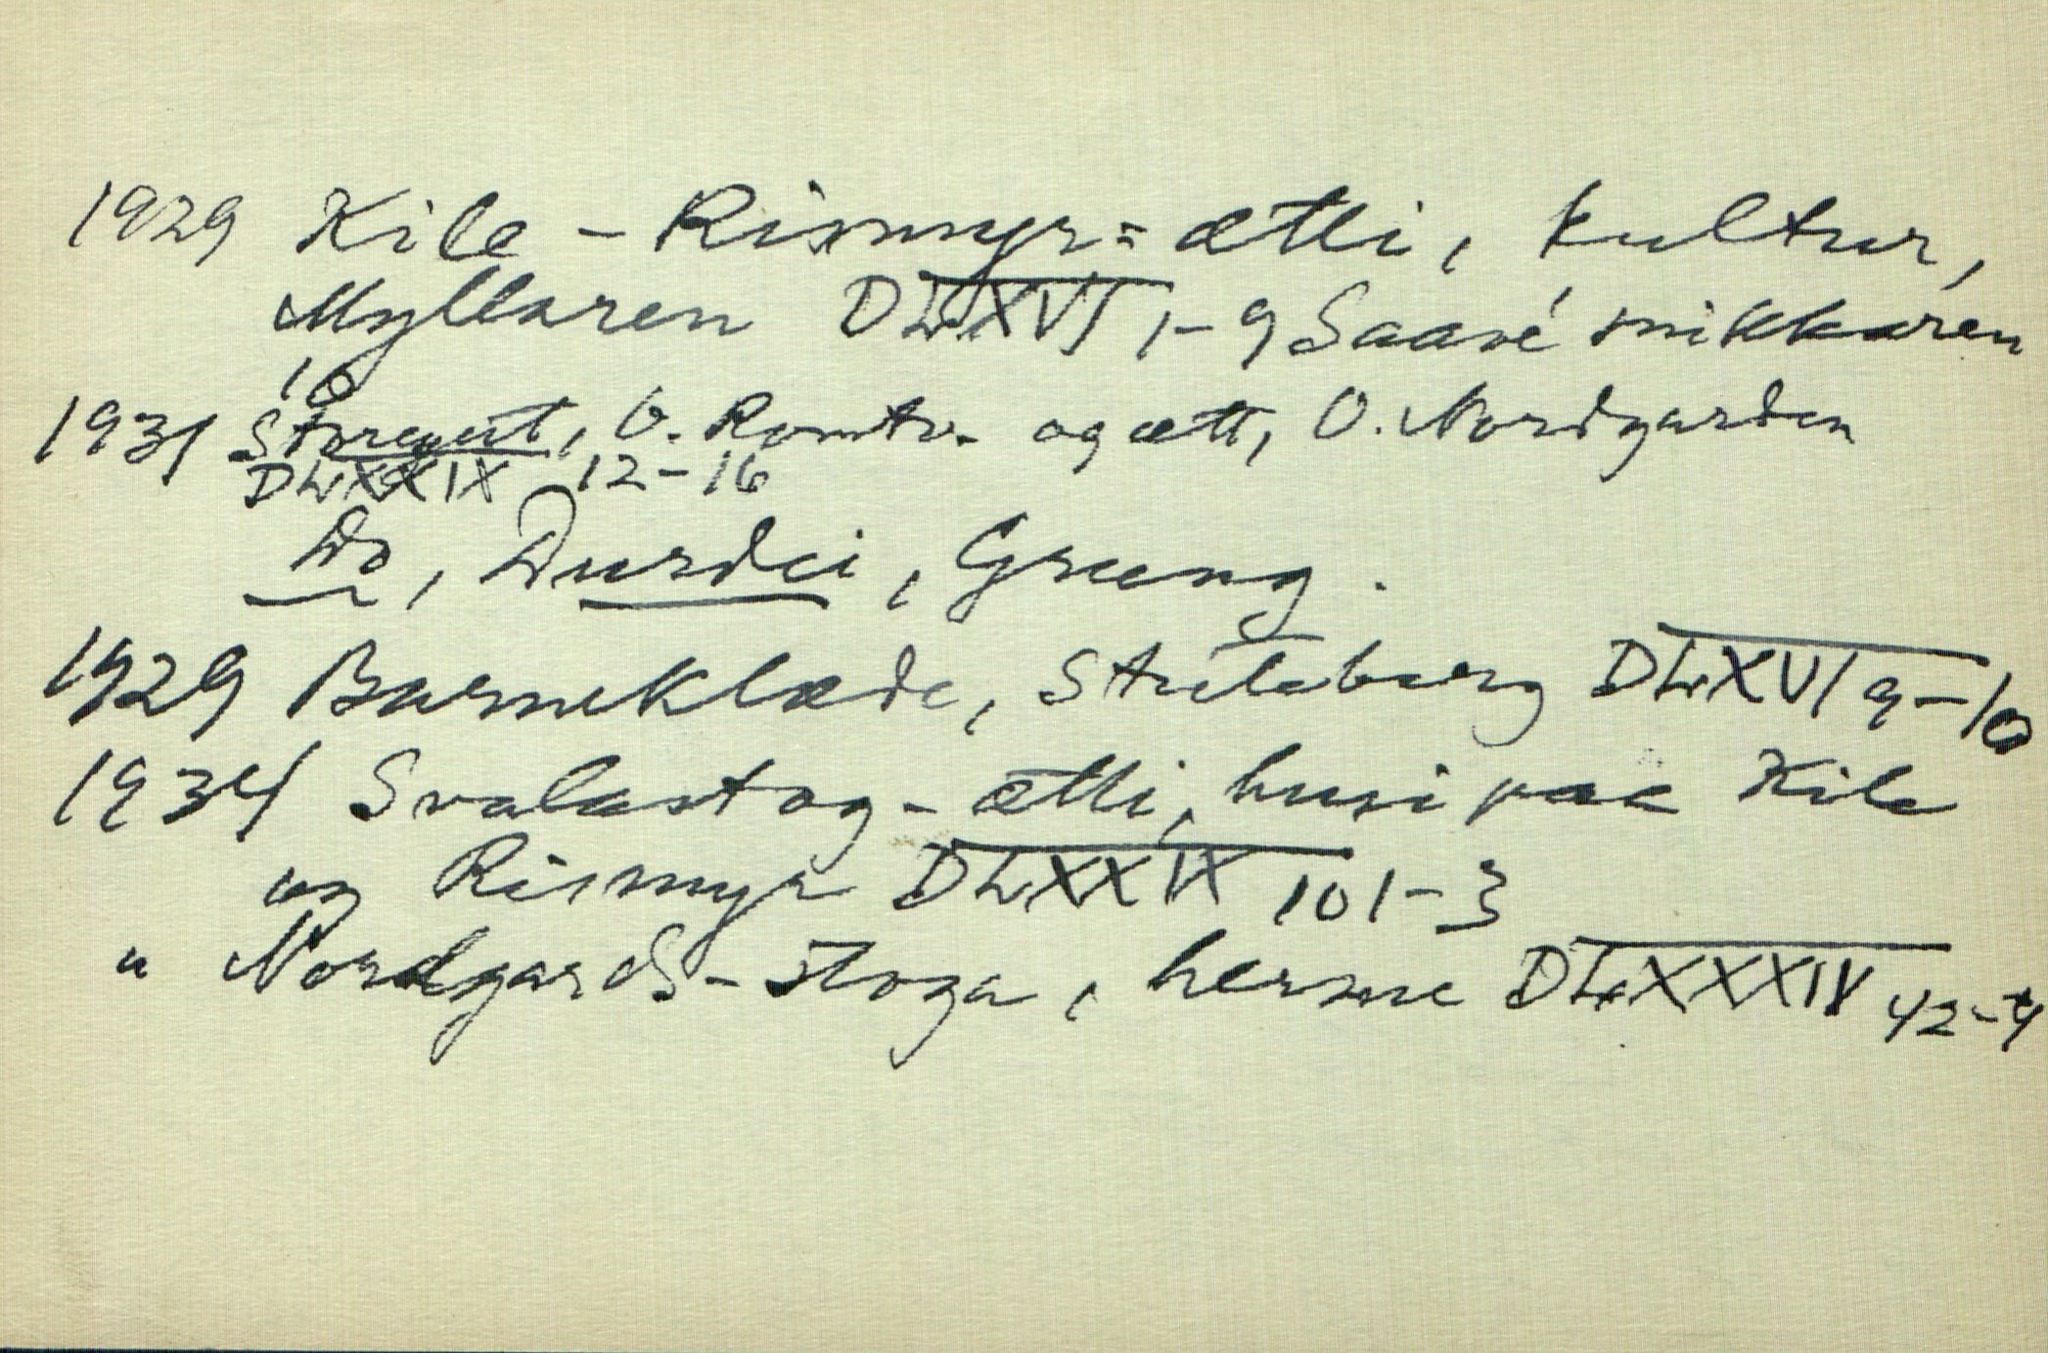 1929 Kile - Rismyr = ætti, kultur,
Myllaren DLXVI 1-9 Saavé snikkaren
10
1931 Storegut, O. Romtv. og ætt, O. Nordgarden
DLXXIX 12-16
Do, Durdei, Grung.
1929 Barneklæde, DLXVI 9-10
1934 Svalastog - ætti, husi paa Kile
og Rismyr DLXXIX 101-3
" Nordgards - stoga, herme DLXXXIV 42-4